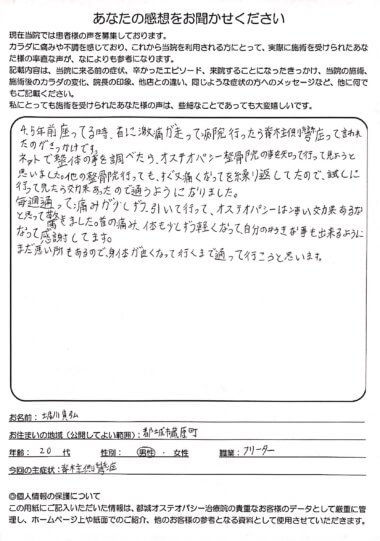 あなたの感想をお聞かせください
現在当院では患者様の声を募集しております。
カラダに痛みや不調を感じており、これから当院を利用される方にとって、実際に施術を受けられたあな
た様の率直な声が、なによりも参考になります。
記載内容は、当院に来る前の症状、辛かったエピソード、来院することになったきっかけ、当院の施術、
施術後のカラダの変化、院長の印象、他店との違い、同じような症状の方へのメッセージなど、他に何で
もご記載ください。
私にとっても施術を受けられたあなた様の声は、些細なことであっても大変嬉しいです。
4、5年前座ってる時、右に激痛が走って病院行ったら脊柱側彎症って言われ
たのがきっかけです。
ネットで整体の事を調べたら、オステオパシー整骨院の事を知って行って見ようと
思いました。他の整骨院行っても、すぐ又痛くなってを繰り返してたので、試しに
行って見たら効果あったので通うようになりました。
毎週通って痛みが少しずつ引いて行って、オステオパシーはすごい効果あるな
と思って驚きました。昔の痛み、体も少しずつ軽くなって、自分の好きな事も出来るように
なって感謝してます。
まだ悪い所もあるので、身体が良くなって行くまで通って行こうと思います。
お名前：堀川真弘
お住まいの地域(公開してよい範囲)：都城市蔵原町
年齢：20 代 性別：男性・女性 職業：フリーター
今回の主症状：脊柱側彎症
◎個人情報の保護について
この用紙にご記入いただいた情報は、都城オステオパシー治療院の貴重なお客様のデータとして厳重に管
理し、ホームページ上や紙面でのご紹介、他のお客様の参考となる資料として使用させていただきます。